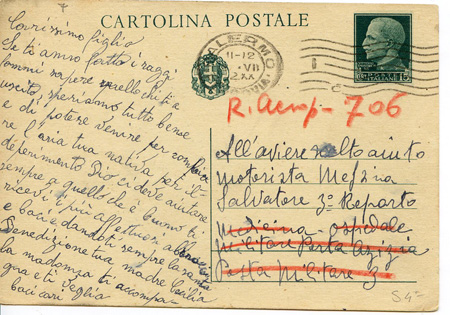 CARTOLINA POSTALE
PALERMO
11-12
VII
XX
R. Aerop - 706
Carissimo figlio
Se ti anno fatto i raggi
fammi sapere quello che ti è
uscito, speriamo tutto bene
e di potere venire per
re l'aria tua nativa per il
deperimento Dio ci deve aiutare
sempre a quello che è buono ti
ricevi i più affettuosi
e baci e dandoti sempre la santa
Benedizione tua madre Cecilia
la madonna ti accompa-
gna e ti veglia
baci cari
All'aviere scelto aiuto
motorista Messina
Salvatore 3° Reparto
Medicina ospedale
militare Porta Azizia
Posta Militare 3